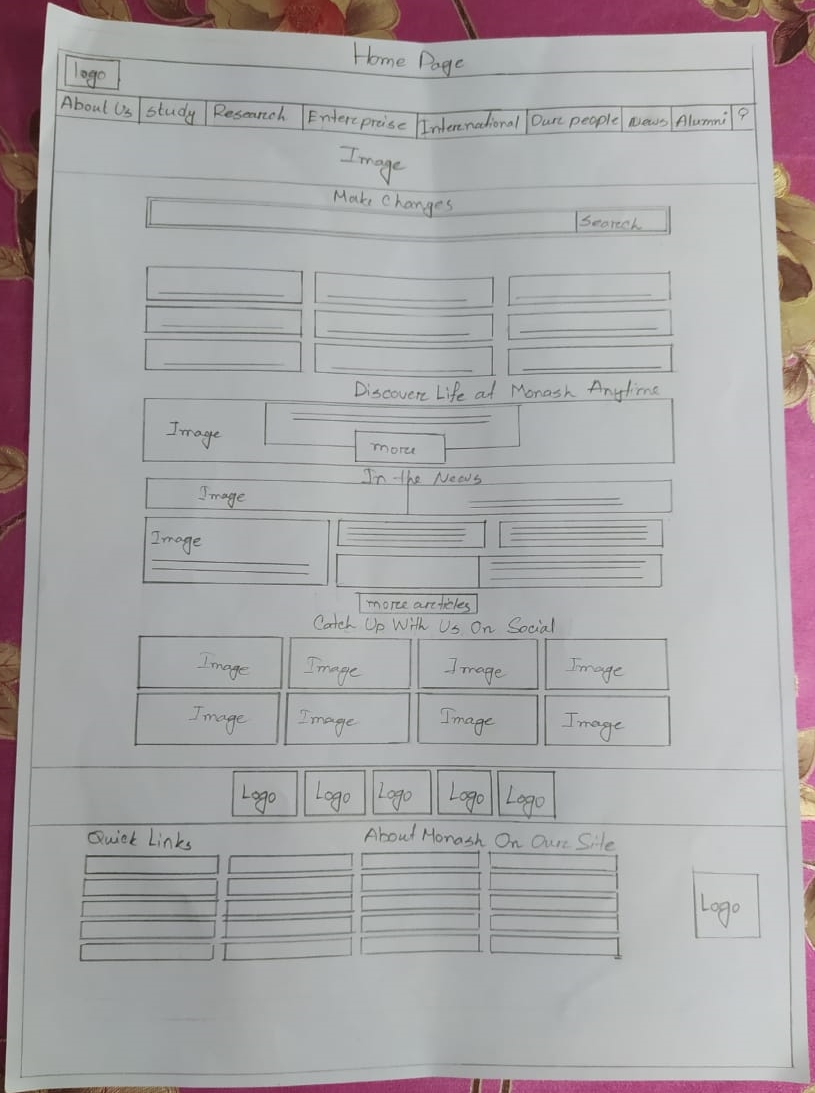 Home Page
logo
About Us study Research Enterepreise Interenational Oure people News Alumni
Image
Make Changes
Search
Discovere Life at Monash Anytime
Image
more
In the News
Image
Image
more areticles
Catch Up With Us On Social
Image Image Image Image
Image Image Image Image
Logo Logo Logo Logo Logo
Quick Links About Monash On Oure Site
Logo